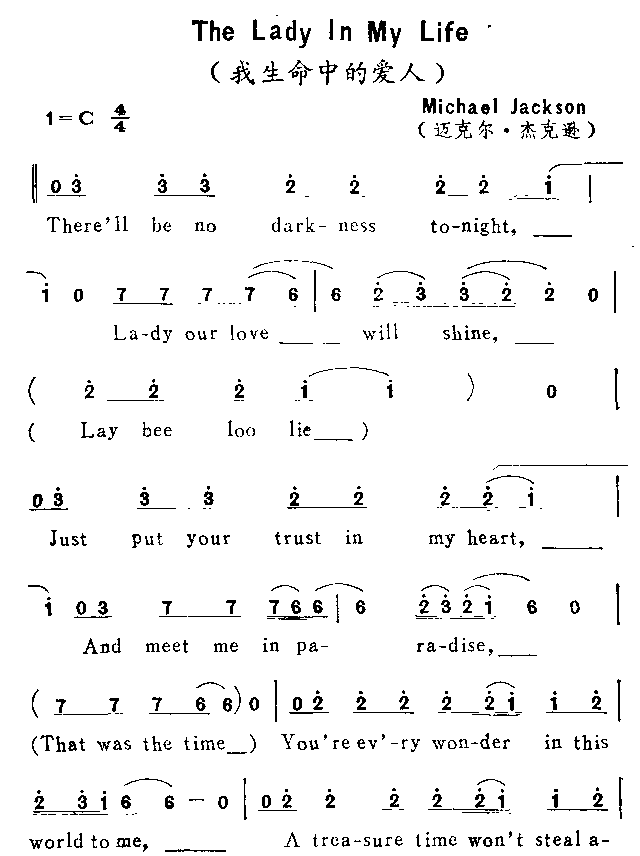 The Lady In My Life
（我生命中的爱人）
1=C 4/4
Michael Jackson
（迈克尔·杰克逊）
0 3 3 3 2 2 2 2 1
There'll be no dark- ness to-night,
1 0 7 7 7 7 6 6 2 3 3 2 2 0
La-dy our love will shine,
( 2 2 2 1 1 ) 0
( Lay bee loo lie )
0 3 3 3 2 2 2 2 1
Just put your trust in my heart,
1 0 3 7 7 7 6 6 6 2 3 2 1 6 0
And meet me in pa- ra-dise,
( 7 7 7 6 6 ) 0 0 2 2 2 2 1 1 2
(That was the time ) You're ev'-ry won-der in this
2 3 1 6 6 - 0 0 2 2 2 2 2 1 1 2
world to me, A trea-sure time won't steal a-